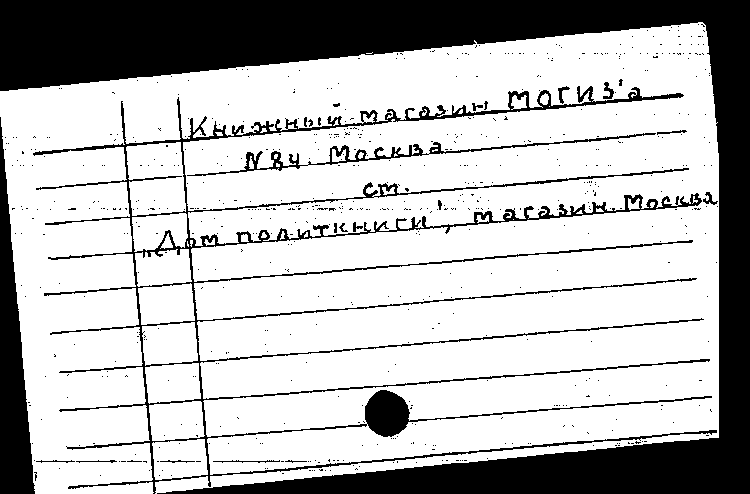 Книжный магазин МОГИЗ'а
N 84. Москва
ст.
„Дом политкниги", магазин. Москва